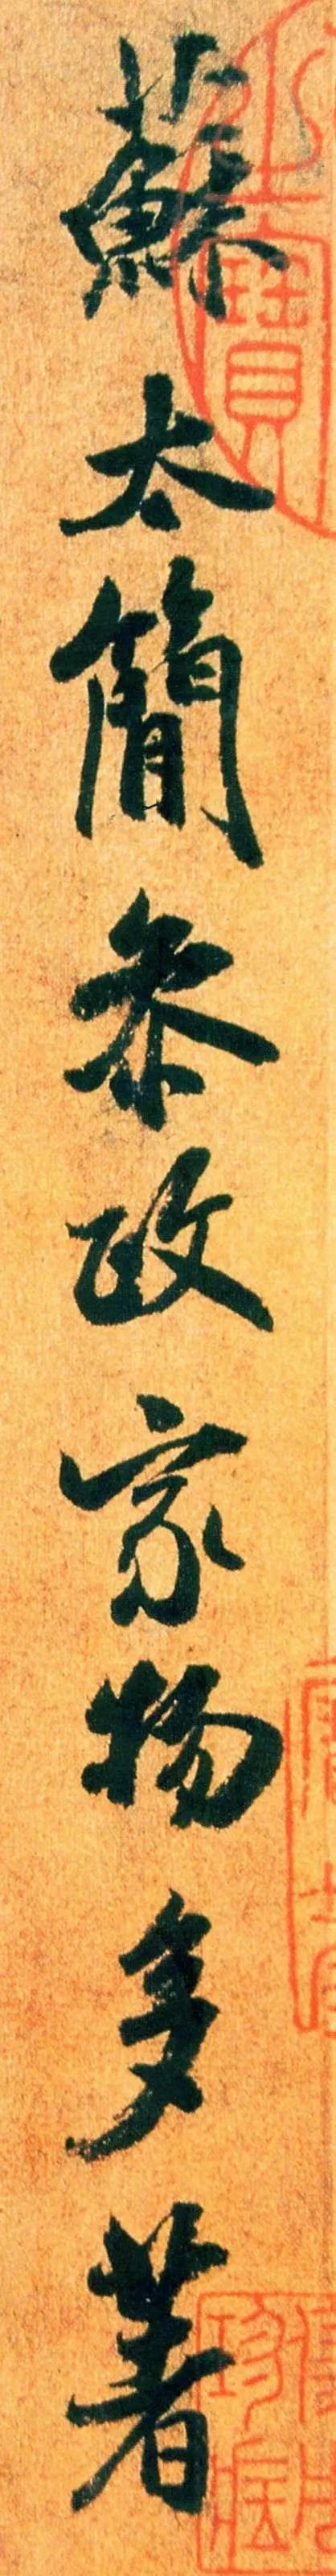 蘇太簡參政家物多著